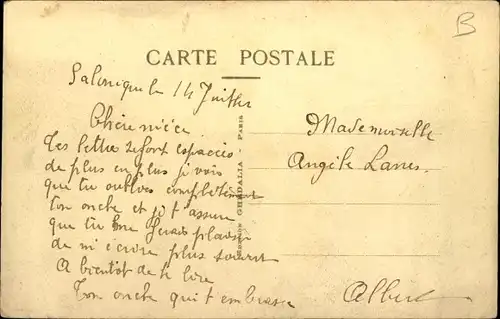 B
CARTE POSTALE
Salonique le 14 Juillet
Chère nièce
Tes lettre se font espacées
de plus en plus je vois
que tu oublies complètement
ton oncle et je t'assure
que tu me ferais plaisir
de m'écrire plus souvent
A bientôt de te lire
Ton oncle qui t'embrasse
GHEDALIA - PARIS
Mademoiselle
Angèle
Albert